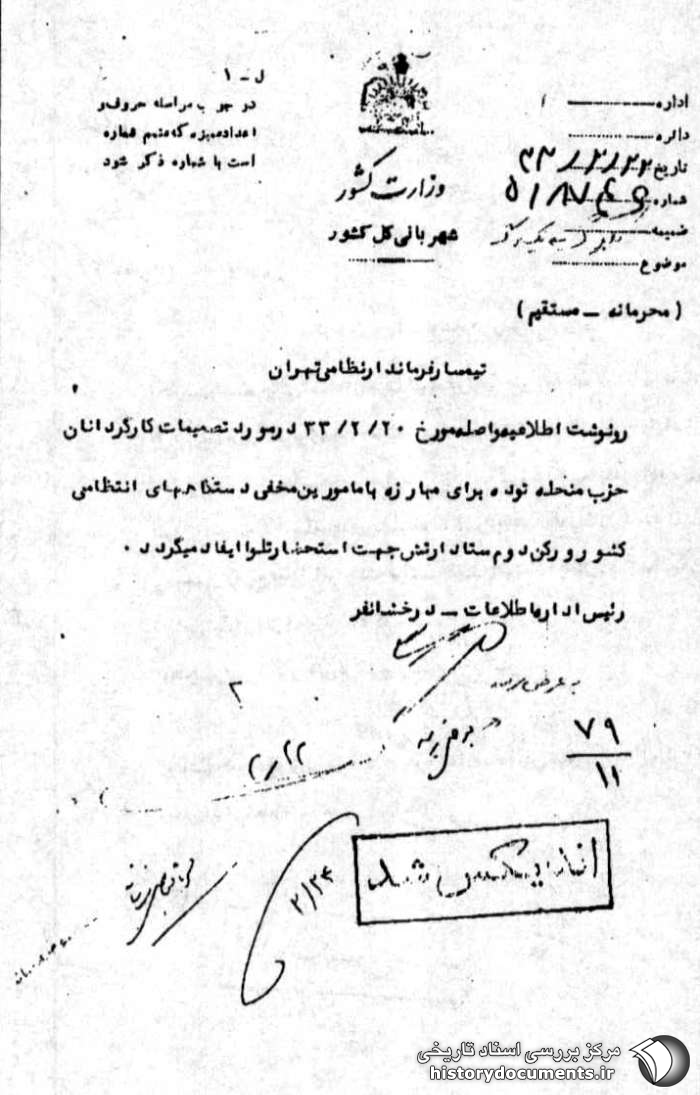 ل - ۱
در جواب مراسله حروف و
اعداد ممیزه که متمم شماره
است با شماره ذکر شود
وزارت کشور
شهربانی کل کشور
اداره
دائره
تاریخ ۳۳/۲/۲۲
شماره
ضمیمه
موضوع
(محرمانه - مستقیم)
تیمسار فرماندار نظامی تهران
رونوشت اطلاعیه واصله مورخ ۳۳/۲/۲۰ در مورد تصمیمات کارگردانان
حزب منحله توده برای مبارزه با مامورین مخفی دستگاههای انتظامی
کشور و رکن دوم ستاد ارتش جهت استحضار تلوا ایفاد میگردد.
رئیس اداره اطلاعات - درخشانفر
به عرض برسد
۲
۷۹
۱۱
۲/۲۲
۲/۲۴
اندیکس شد
مرکز بررسی اسناد تاریخی
historydocuments.ir